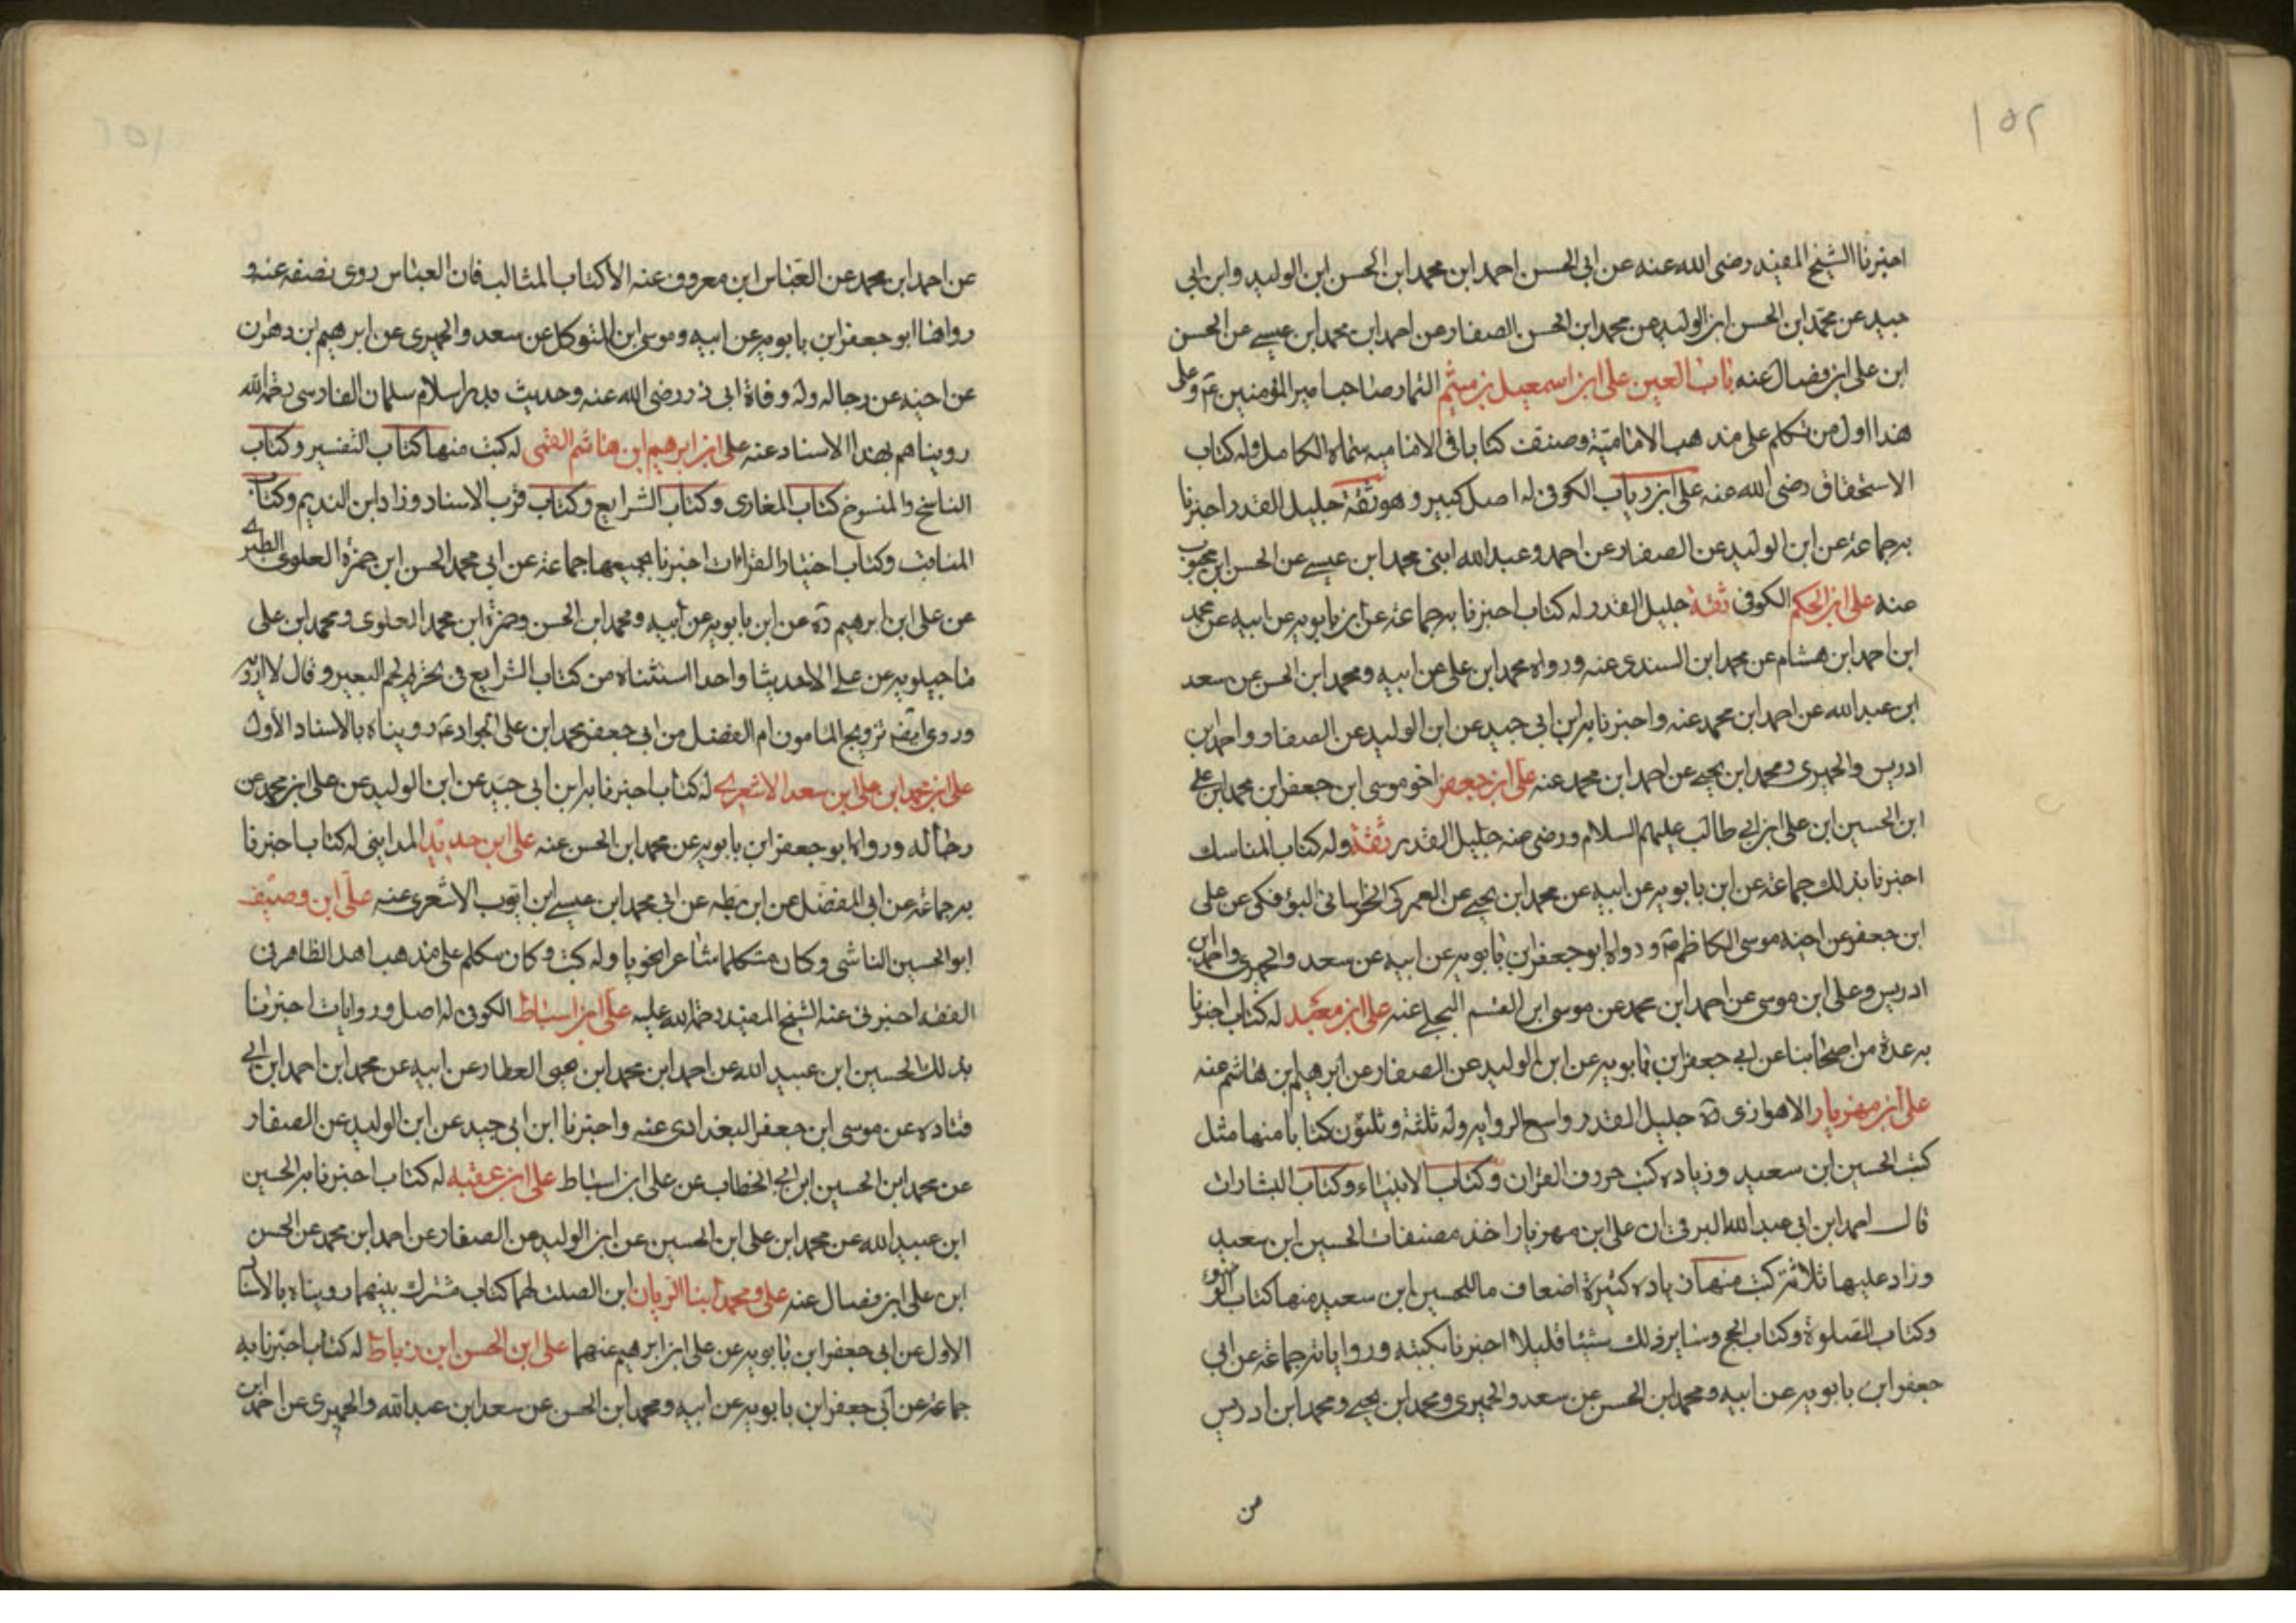 ١٥٢
اخبرنا الشيخ المفيد رضى الله عنه عن ابى الحسن احمد ابن محمد ابن الحسن ابن الوليد وابن ابى
جيد عن محمد ابن الحسن ابن الوليد عن محمد ابن الحسن الصفار عن احمد ابن محمد ابن عيسى عن الحسن
ابن على ابن فضال عنه باب العين على ابن اسمعيل بن ميثم التمار صاحب امير المؤمنين ع وعلى
هذا اول من تكلم على مذهب الامامية وصنف كتابا فى الامامية سماه الكامل وله كتاب
الاستحقاق رضى الله عنه على ابن رياب الكوفى له اصل كبير وهو ثقة جليل القدر اخبرنا
به جماعة عن ابن الوليد عن الصفار عن احمد وعبد الله ابنى محمد ابن عيسى عن الحسن ابن محبوب
عنه على ابن الحكم الكوفى ثقة جليل القدر له كتاب اخبرنا به جماعة عن ابن بابويه عن ابيه عن محمد
ابن احمد ابن هشام عن محمد ابن السندى عنه ورواه محمد ابن على عن ابيه ومحمد ابن الحسن عن سعد
ابن عبد الله عن احمد ابن محمد عنه واخبرنا به ابن ابى جيد عن ابن الوليد عن الصفار واحمد ابن
ادريس والحميرى ومحمد ابن يحيى عن احمد ابن محمد عنه على ابن جعفر اخو موسى ابن جعفر ابن محمد ابن على
ابن الحسين ابن على ابن ابى طالب عليهم السلام ورضى عنه جليل القدر ثقة وله كتاب المناسك
اخبرنا بذلك جماعة عن ابن بابويه عن ابيه عن محمد ابن يحيى عن العمركى الخراسانى البوفكى عن على
ابن جعفر عن اخيه موسى الكاظم ع ورواه ابو جعفر ابن بابويه عن ابيه عن سعد والحميرى واحمد ابن
ادريس وعلى ابن موسى عن احمد ابن محمد عن موسى ابن القسم البجلى عنه على ابن معبد له كتاب اخبرنا
به عدة من اصحابنا عن ابى جعفر ابن بابويه عن ابن الوليد عن الصفار عن ابرهيم بن هاشم عنه
على ابن مهزيار الاهوازى ره جليل القدر واسع الرواية وله ثلثة وثلثون كتابا منها مثل
كتب الحسين ابن سعيد وزيادة كتب حروف القران وكتاب الانبياء وكتاب البشارات
قال احمد ابن ابى عبد الله البرقى ان على ابن مهزيار اخذ مصنفات الحسين ابن سعيد
وزاد عليها ثلاثة كتب منها زيادة كثيرة اضعاف ما للحسين ابن سعيد منها كتاب الوضوء
وكتاب الصلوة وكتاب الحج وساير ذلك شيئا قليلا اخبرنا بكتبه ورواياته جماعة عن ابى
جعفر ابن بابويه عن ابيه ومحمد ابن الحسن عن سعد والحميرى ومحمد ابن يحيى ومحمد ابن ادريس
عن احمد ابن محمد عن العباس ابن معروف عنه الا كتاب المثالب فان العباس روى نصفه عنه و
رواها ابو جعفر ابن بابويه عن ابيه وموسى ابن المتوكل عن سعد والحميرى عن ابرهيم ابن
عن اخيه عن رجاله وله وفاة ابى ذر رضى الله عنه وحديث اسلام سلمان الفارسى رحمه الله
رويناهم بهذا الاسناد عنه على ابن ابرهيم ابن هاشم القمى له كتب منها كتاب التفسير وكتاب
الناسخ والمنسوخ كتاب المغازى وكتاب الشرايع وكتاب قرب الاسناد وزاد ابن النديم وكتاب
المناقب وكتاب اختيار القراءات اخبرنا بجميعها جماعة عن ابى محمد الحسن ابن حمزة العلوى الطبرى
عن على ابن ابرهيم ره عن ابن بابويه عن ابيه ومحمد ابن الحسن وحمزة ابن محمد العلوى ومحمد ابن على
ماجيلويه عن على الا حديثا واحدا استثناه من كتاب الشرايع فى تحريم لحم البعير وقال لا ارويه
وروى ايضا تزويج المامون ام الفضل من ابى جعفر محمد ابن على الجواد ع رويناه بالاسناد الاول
على ابن محمد ابن على ابن سعد الاشعرى له كتاب اخبرنا به ابن ابى جيد عن ابن الوليد عن على ابن محمد عن
رجاله ورواه ابو جعفر ابن بابويه عن محمد ابن الحسن عنه على ابن حديد المداينى له كتاب اخبرنا
به جماعة عن ابى المفضل عن ابن بطه عن ابى محمد ابن عيسى ابن ايوب الاشعرى عنه على ابن وصيف
ابو الحسين الناشى وكان متكلما شاعرا نحويا وله كتب وكان متكلم على مذهب اهل الظاهر فى
الفقه اخبرنى عنه الشيخ المفيد رحمة الله عليه على ابن اسباط الكوفى له اصل وروايات اخبرنا
بذلك الحسين ابن عبيد الله عن احمد ابن محمد ابن يحيى العطار عن ابيه عن محمد ابن احمد ابن ابى
قتاده عن موسى ابن جعفر البغدادى عنه واخبرنا ابن ابى جيد عن ابن الوليد عن الصفار
عن محمد ابن الحسين ابن ابى الخطاب عن على ابن اسباط على ابن عقبه له كتاب اخبرنا به الحسين
ابن عبيد الله عن محمد ابن على ابن الحسين عن ابن الوليد عن الصفار عن احمد ابن محمد عن الحسن
ابن على ابن فضال عنه على ومحمد ابنا الريان ابن الصلت لهما كتاب مشترك بينهما رويناه بالاسناد
الاول عن ابى جعفر ابن بابويه عن على ابن ابرهيم عنهما على ابن الحسن ابن رباط له كتاب اخبرنا به
جماعة عن ابى جعفر ابن بابويه عن ابيه ومحمد ابن الحسن عن سعد ابن عبد الله والحميرى عن احمد ابن